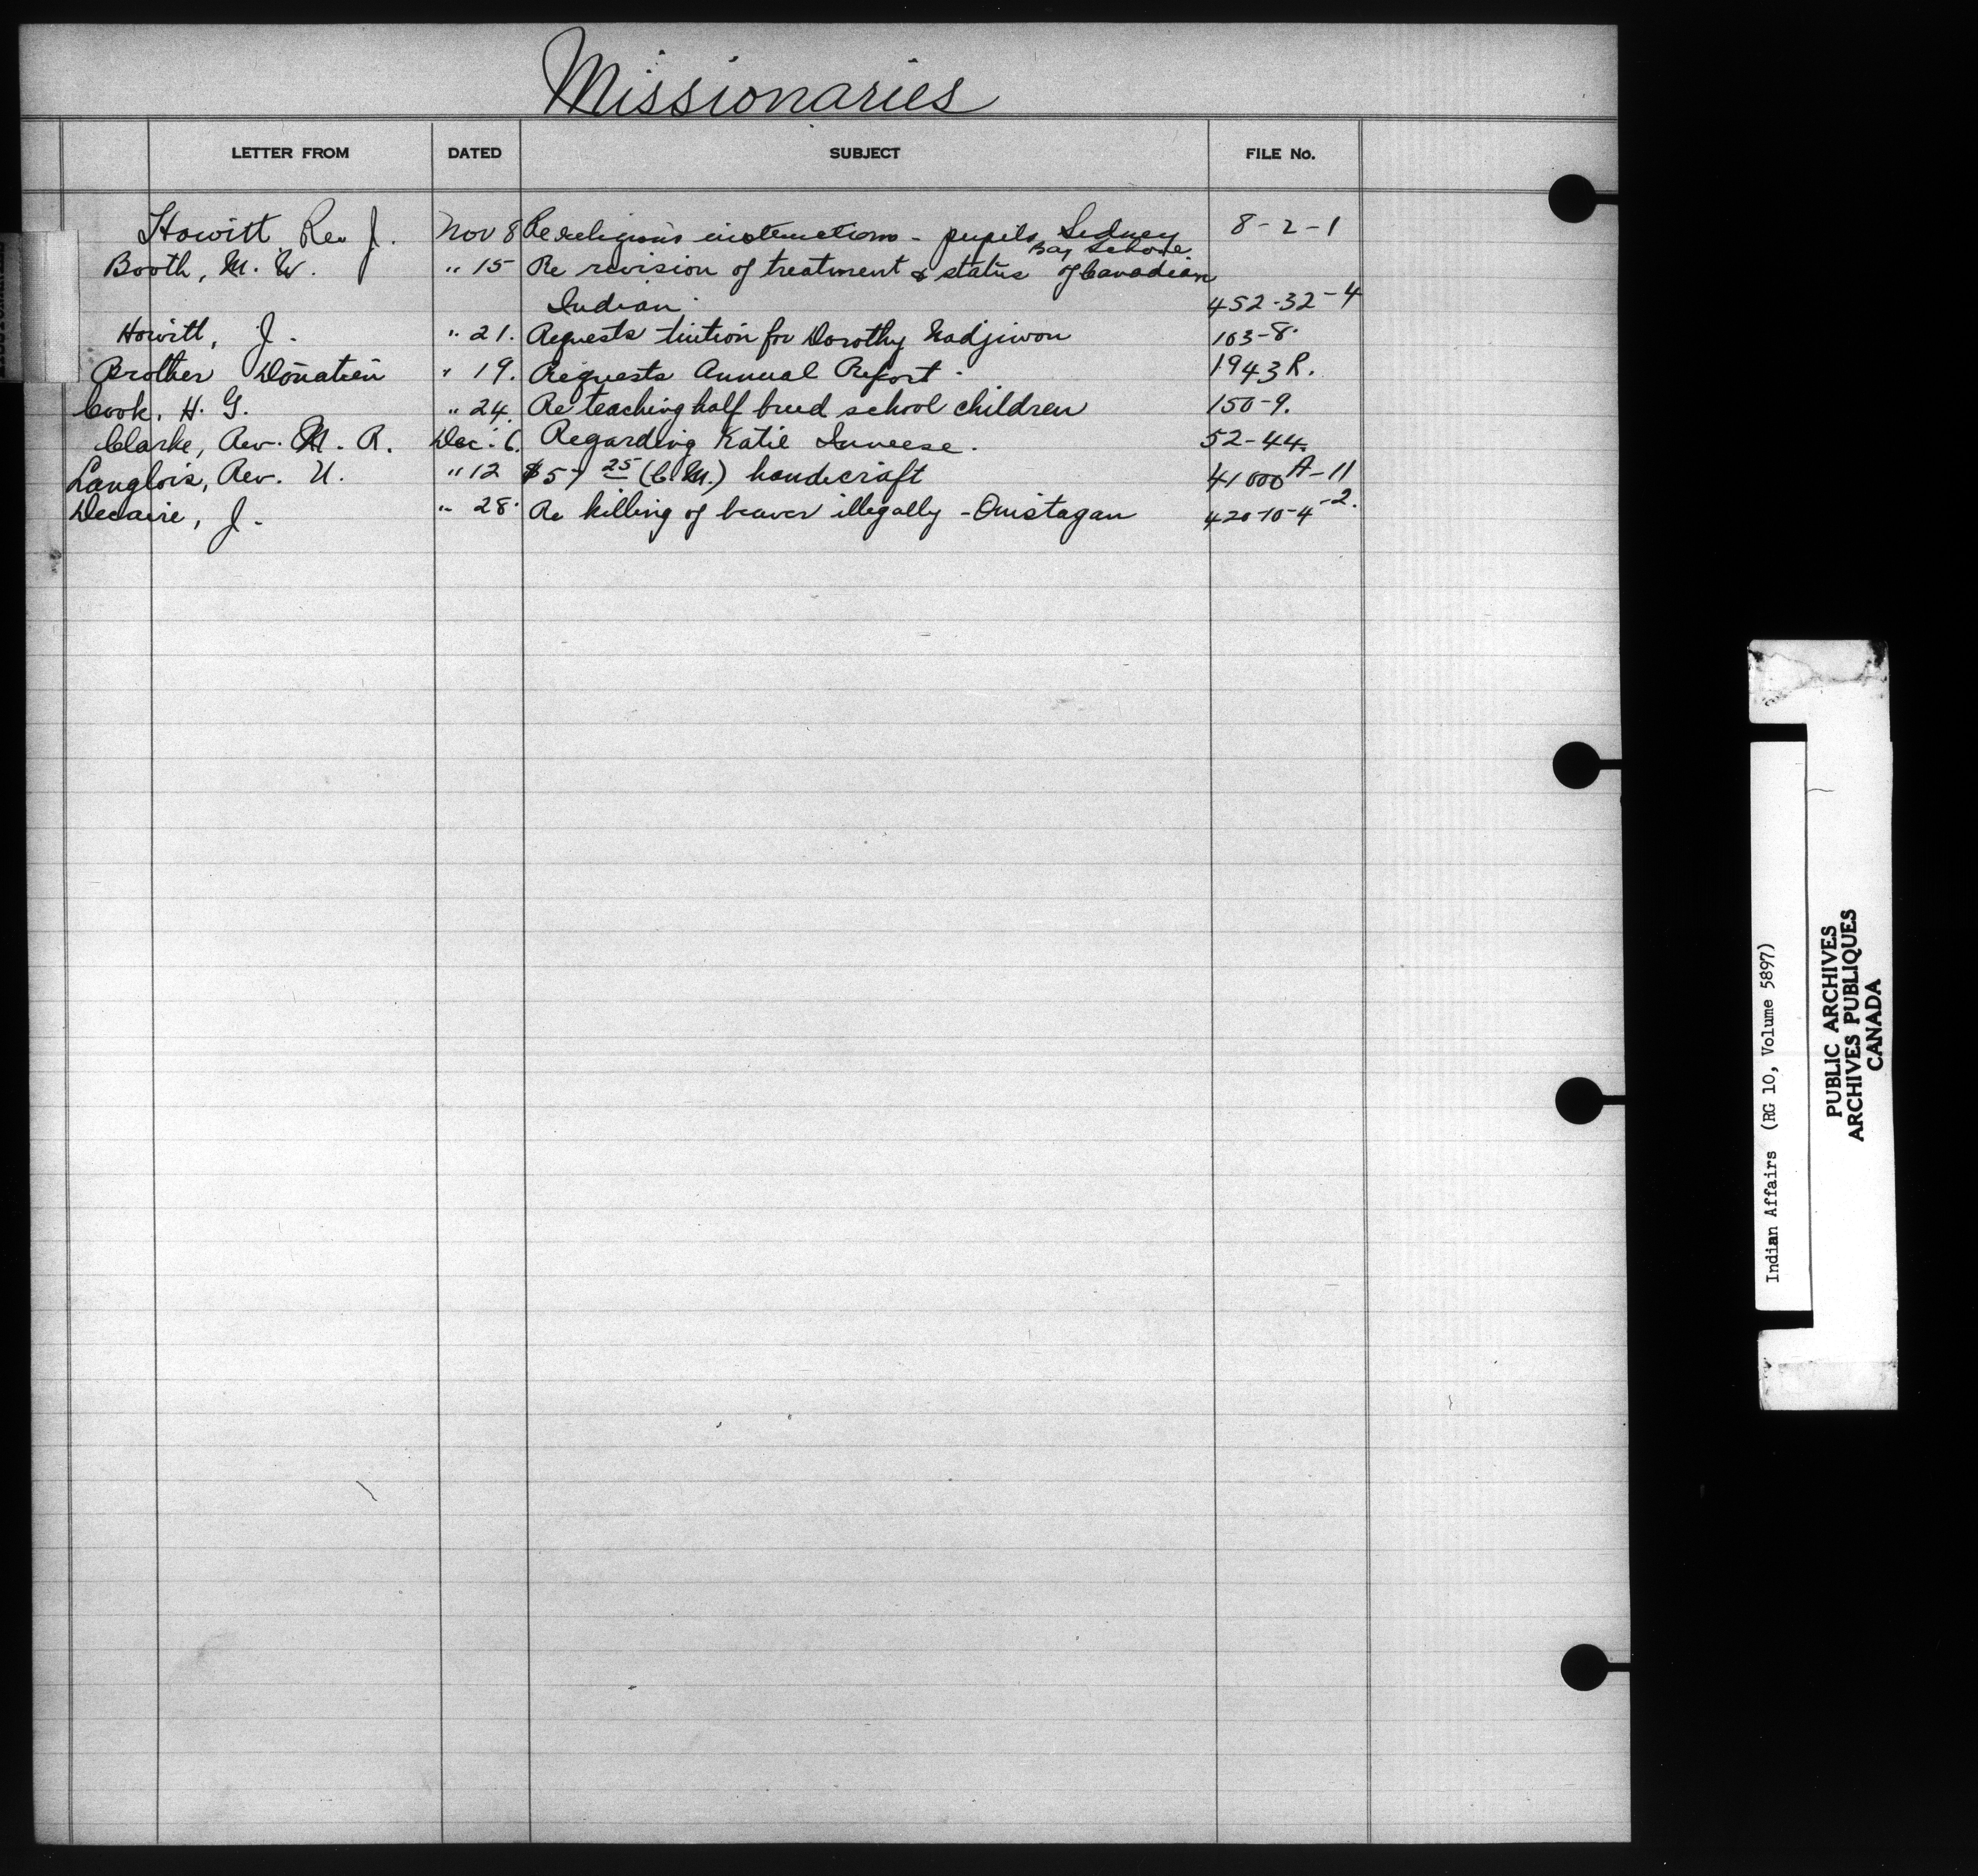 Missionaries
LETTER FROM DATED SUBJECT FILE No.
Howitt Rev J. Nov 8 Re religious instructions - pupils Sidney 8-2-1
Bay School
Booth, M. W. " 15 Re revision of treatment & status of Canadian
Indian. 452-32-4
Howitt, J. " 21. Requests tuition for Dorothy Nadjiwon 103-8.
Brother Donatien " 19. Requests Annual Report. 1943 R.
Cook, H. G. " 24. Re teaching half breed school children 150-9.
Clarke, Rev. M. R. Dec. 6. Regarding Katie. 52-44.
Langlois, Rev. U. " 12 $57 25 (C.M.) handicraft 41000 A-11
Decaire, J. " 28. Re killing of beaver illegally - Onistagan 420-10-4-2.
Indian Affairs (RG 10, Volume 5897)
PUBLIC ARCHIVES
ARCHIVES PUBLIQUES
CANADA